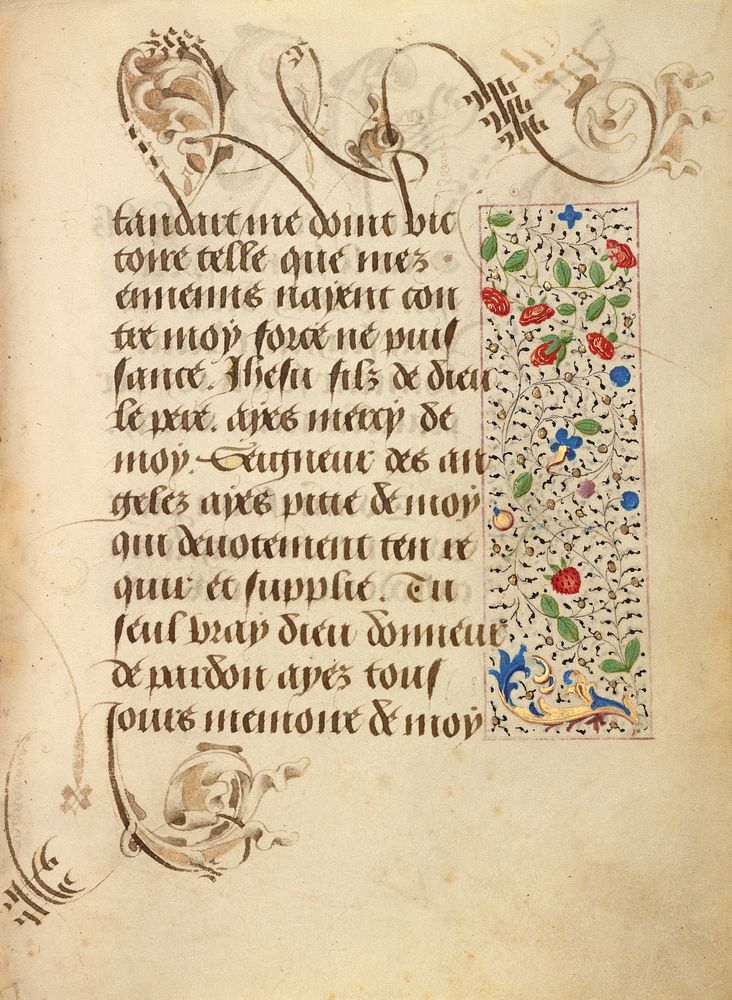 tandart me doint vic
toire telle que mez
ennemis nayent con
tre moy force ne puis
sance. Jhesu filz de dieu
le pere. ayes mercy de
moy. Seigneur des an
gelez ayes pitie de moy
qui deuotement ten re
quir et supplie. Tu
seul vray dieu donneur
de pardon ayez tous
jours memoire de moy